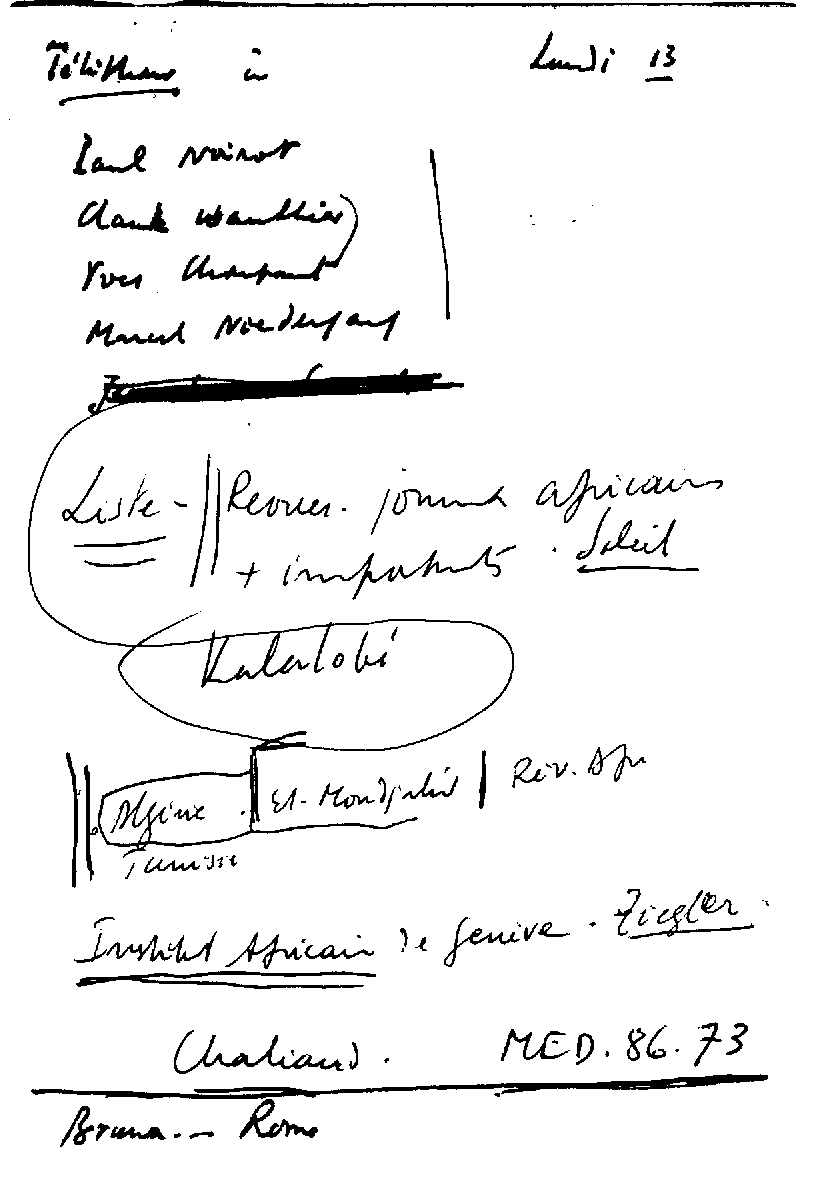 Téléphoner à Lundi 13
Paul Noirot
Claude Wauthier
Yves
Marcel Niedergang
Liste - Revues. journaux africains
+ importants . Soleil
Kalalobi
Algérie . El-Moudjahid | Rev. Afr
Tunisie
Institut Africain de Genève . Ziegler .
Chaliand . MED. 86. 73
Bruna - Rome